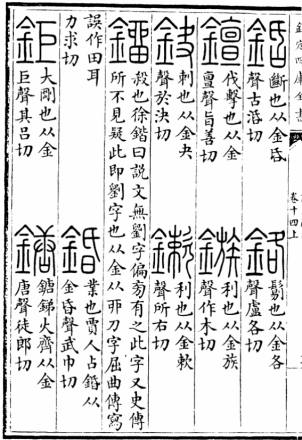 卷十四上
銽 斷也从金昏
聲古活切
鉻 鬄也从金各
聲盧各切
伐擊也从金
亶聲旨善切
鏃 利也从金族
聲作木切
鈌 刺也从金夬
聲於決切
鏉 利也从金欶
聲所右切
鎦 殺也徐鍇曰說文無劉字偏旁有之此字又史傳
所不見疑此即劉字也从金从丣刀字屈曲傳寫
誤作田耳
力求切
鍲 業也賈人占鍲从
金昏聲武巾切
鉅 大剛也从金
巨聲其呂切
鎕 鎕銻火齊从金
唐聲徒郎切